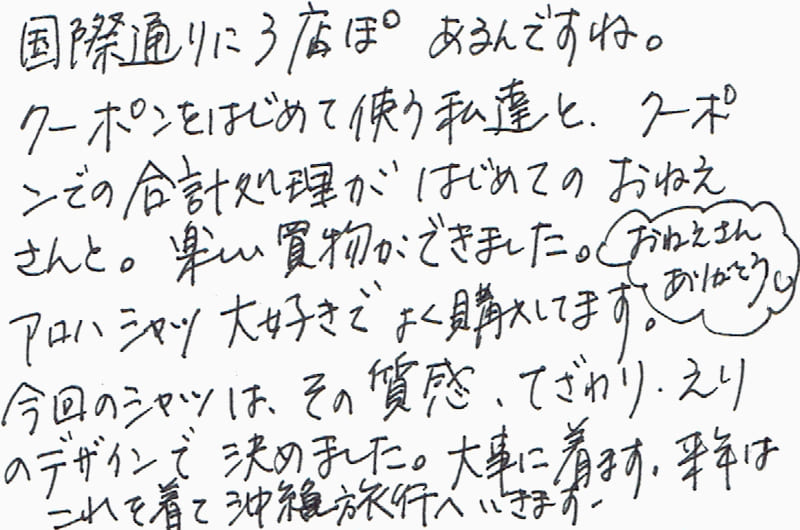 国際通りに3店ほど あるんですね。
クーポンをはじめて使う私達と、クーポ
ンでの合計処理がはじめてのおねえ
さんと。楽しい買物ができました。
おねえさん
ありがとう
アロハシャツ大好きでよく購入してます。
今回のシャツは、その質感、てざわり・えり
のデザインで決めました。大事に着ます。来年は
これを着て沖縄旅行へいきます。